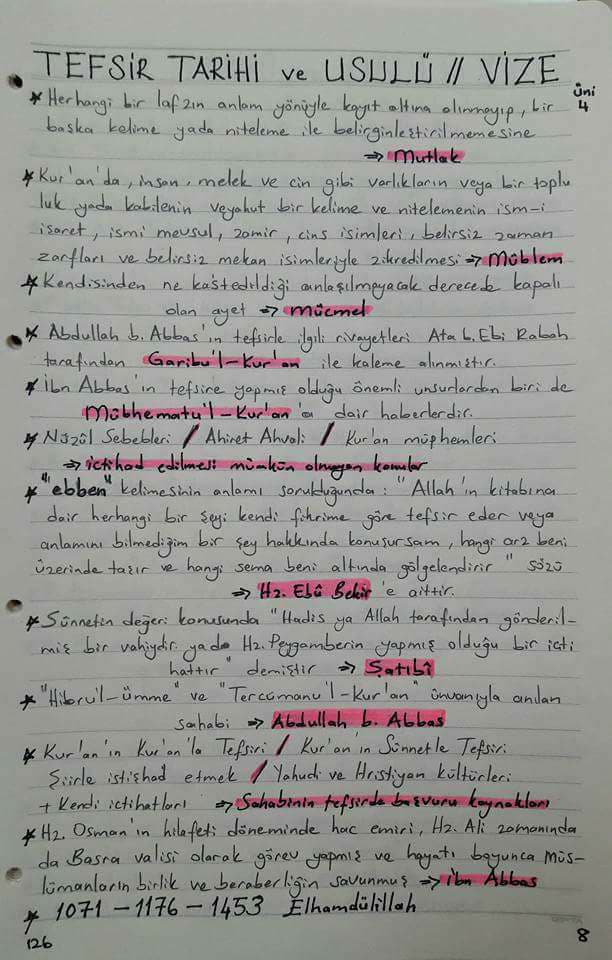 TEFSİR TARİHİ ve USULÜ // VİZE
Üni
4
* Herhangi bir lafzın anlam yönüyle kayıt altına alınmayıp, bir
başka kelime yada niteleme ile belirginleştirilmemesine
⇒ Mutlak
* Kur'an'da, insan, melek ve cin gibi varlıkların veya bir toplu
luk yada kabilenin veyahut bir kelime ve nitelemenin ism-i
işaret, ismi mevsul, zamir, cins isimleri, belirsiz zaman
zarfları ve belirsiz mekan isimleriyle zikredilmesi ⇒ Müblem
* Kendisinden ne kastedildiği anlaşılmayacak derecede kapalı
olan ayet ⇒ Mücmel
* Abdullah b. Abbas'ın tefsirle ilgili rivayetleri Ata b. Ebi Rabah
tarafından Garibu'l-Kur'an ile kaleme alınmıştır.
* İbn Abbas'ın tefsire yapmış olduğu önemli unsurlardan biri de
Mübhematu'l-Kur'an'a dair haberlerdir.
* Nüzûl Sebebleri / Ahiret Ahvali / Kur'an müphemleri
⇒ ictihad edilmesi mümkün olmayan konular
* "ebben" kelimesinin anlamı sorulduğunda: "Allah'ın kitabına
dair herhangi bir şeyi kendi fikrime göre tefsir eder veya
anlamını bilmediğim bir şey hakkında konuşursam, hangi arz beni
üzerinde taşır ve hangi sema beni altında gölgelendirir" sözü
⇒ Hz. Ebû Bekir'e aittir.
* Sünnetin değeri konusunda "Hadis ya Allah tarafından gönderil-
miş bir vahiydir yada Hz. Peygamberin yapmış olduğu bir icti
hattır" demiştir ⇒ Şatıbî
* "Hibru'l-ümme" ve "Tercümanu'l-Kur'an" ünvanıyla anılan
sahabi ⇒ Abdullah b. Abbas
* Kur'an'ın Kur'an'la Tefsiri / Kur'an'ın Sünnetle Tefsiri
Şiirle istişhad etmek / Yahudi ve Hristiyan kültürleri
+ Kendi ictihatları ⇒ Sahabinin tefsirde başvuru kaynakları
* Hz. Osman'ın hilafeti döneminde hac emiri, Hz. Ali zamanında
da Basra valisi olarak görev yapmış ve hayatı boyunca Müs-
lümanların birlik ve beraberliğin savunmuş ⇒ İbn Abbas
* 1071 - 1176 - 1453 Elhamdülillah
126
8